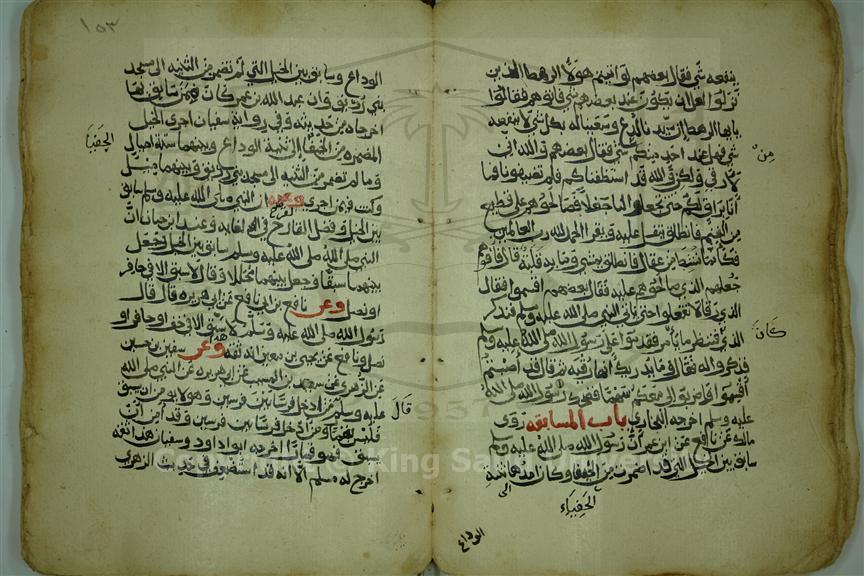 ينفعه شي فقال بعضهم لو اتيتم هولا الرهط الذين
نزلوا لعل ان يكون عند بعضهم شي فاتوهم فقالوا
يايها الرهط ان سيدنا لدغ وسعينا له بكل شي لا ينفعه
شي فهل عند احد منكم شي فقال بعضهم والله اني
لارقي ولكن والله قد استضفناكم فلم تضيفونا فما
انا براق لكم حتى تجعلوا لنا جعلا فصالحوهم على قطيع
من الغنم فانطلق يتفل عليه ويقرا الحمد لله رب العالمين
فكانما نشط من عقال فانطلق يمشي وما به قلبة قال فاوفوهم
جعلهم الذي صالحوهم عليه فقال بعضهم اقسموا فقال
الذي رقا لا تفعلوا حتى ناتي النبي صلى الله عليه وسلم فنذكر
الذي فننظر ما يأمر فقدموا على رسول الله صلى الله عليه وسلم
فذكروا له فقال وما يدريك انها رقية ثم قال قد اصبتم
اقسموا واضربوا لي معكم سهما فضحك رسول الله صلى الله
عليه وسلم اخرجه البخاري باب المسابقه روى
مالك عن نافع عن ابن عمر ان رسول الله صلى الله عليه وسلم
سابق بين الخيل التي قد اضمرت من الحفيا وكان امدها ثنية
من
كان
الى
الحفياء
الوداع
١٥٣
الوداع وسابق بين الخيل التي لم تضمر من الثنيه الى مسجد
بني زريق وان عبد الله بن عمر كان فيمن سابق بها
اخرجاه من حديثه وفي رواية سفيان اجرى الخيل
المضمره من الحفيا الى ثنية الوداع وبينهما ستة اميال
وما لم تضمر من الثنيه الى مسجد بني زريق وبينهما ميل
وكنت فيمن اجرى وعنه ان النبي صلى الله عليه وسلم سابق
بين الخيل وفضل القارح في الغايه وعند ابن حبان ان
النبي صلى الله عليه وسلم سابق بين الخيل وجعل
بينهما سبقا وجعل بينهما محللا وقال لا سبق الا في حافر
او نصل وعن نافع بن ابي نافع عن ابي هريره قال قال
رسول الله صلى الله عليه وسلم لا سبق الا في خف او حافر او
نصل ونافع عن يحيى بن معين انه ثقه وعن سفين بن حسين
عن الزهري عن سعيد بن المسيب عن ابي هريره عن النبي صلى الله
عليه وسلم من ادخل فرسا بين فرسين وهو لا يومن ان يسبق
فليس بقمار ومن ادخل فرسا بين فرسين وقد امن ان
يسبق فهو قمار اخرجه ابو داود وسفيان هذا ثقه
اخرج له مسلم الا انه قد استضعف في حديث الزهري
الحفيا
قال